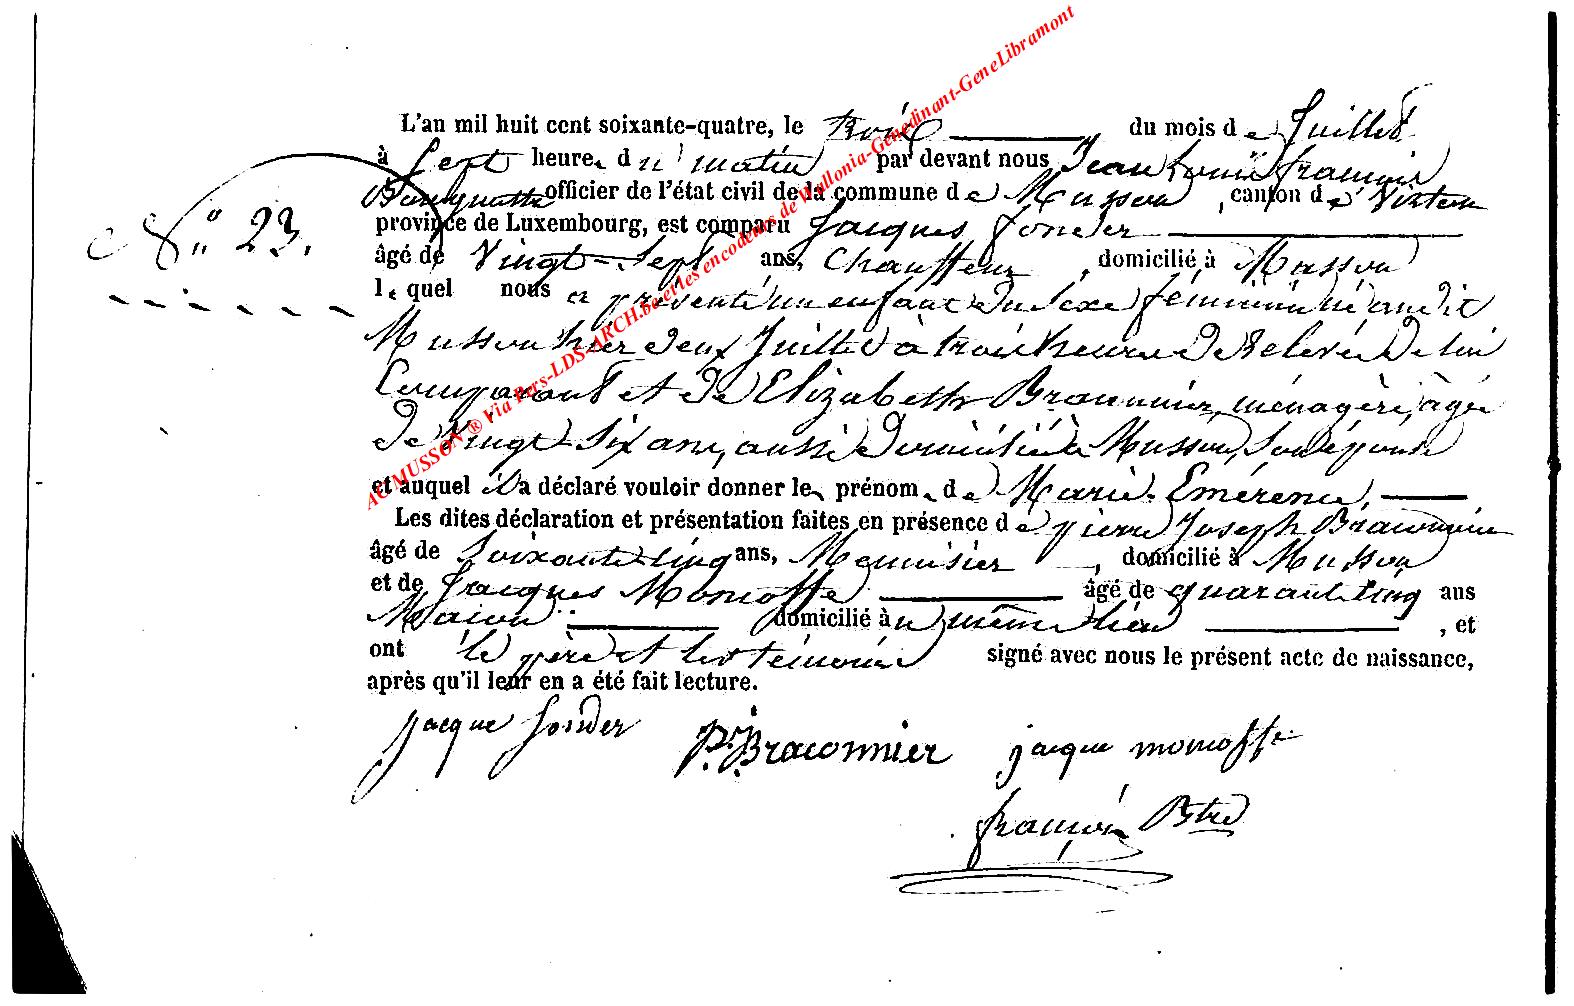 L'an mil huit cent soixante-quatre, le trois du mois de Juillet
à Sept heures du matin par devant nous Jean Louis françois
officier de l'état civil de la commune de Musson, canton de Virton
province de Luxembourg, est comparu Jacques Fonder
N.° 23.
âgé de Vingt-Sept ans, Chauffeur, domicilié à Musson
lequel nous a présenté un enfant du sexe féminin né audit
Musson hier deux Juillet à trois heures de Relevée de lui
Comparant et de Elizabeth Braconnier, ménagère, âgée
de Vingt Six ans, aussi domiciliée à Musson, Son épouse
et auquel il a déclaré vouloir donner les prénoms de Marie-Emérence,
Les dites déclaration et présentation faites en présence de pierre Joseph Braconnier
âgé de Soixante cinq ans, Menuisier, domicilié à Musson
et de Jacques Monoffe âgé de quarante cinq ans
Maçon domicilié au même lieu, et
ont le père et les témoins signé avec nous le présent acte de naissance,
après qu'il leur en a été fait lecture.
jacque fonder P.J. Braconnier jacque monoffe
françois Btte
AC MUSSON® Via Pers-LDS-ARCH.be et les encodeurs de Wallonia-Genedinant-GeneLibramont